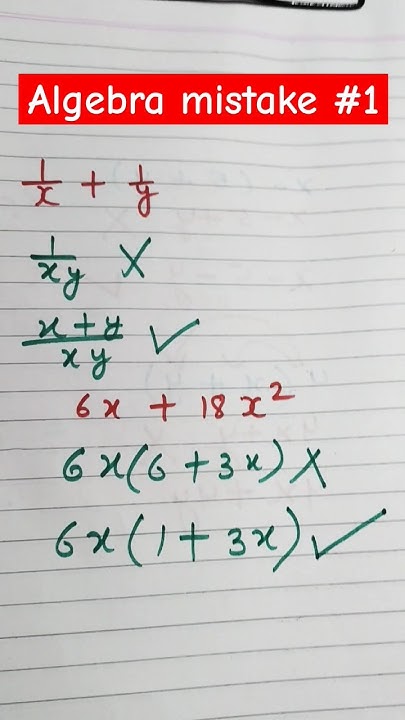 Algebra mistake #1
1/x + 1/y
1/xy ✗
x+y/xy ✓
6x + 18x²
6x(6 + 3x) ✗
6x(1 + 3x) ✓